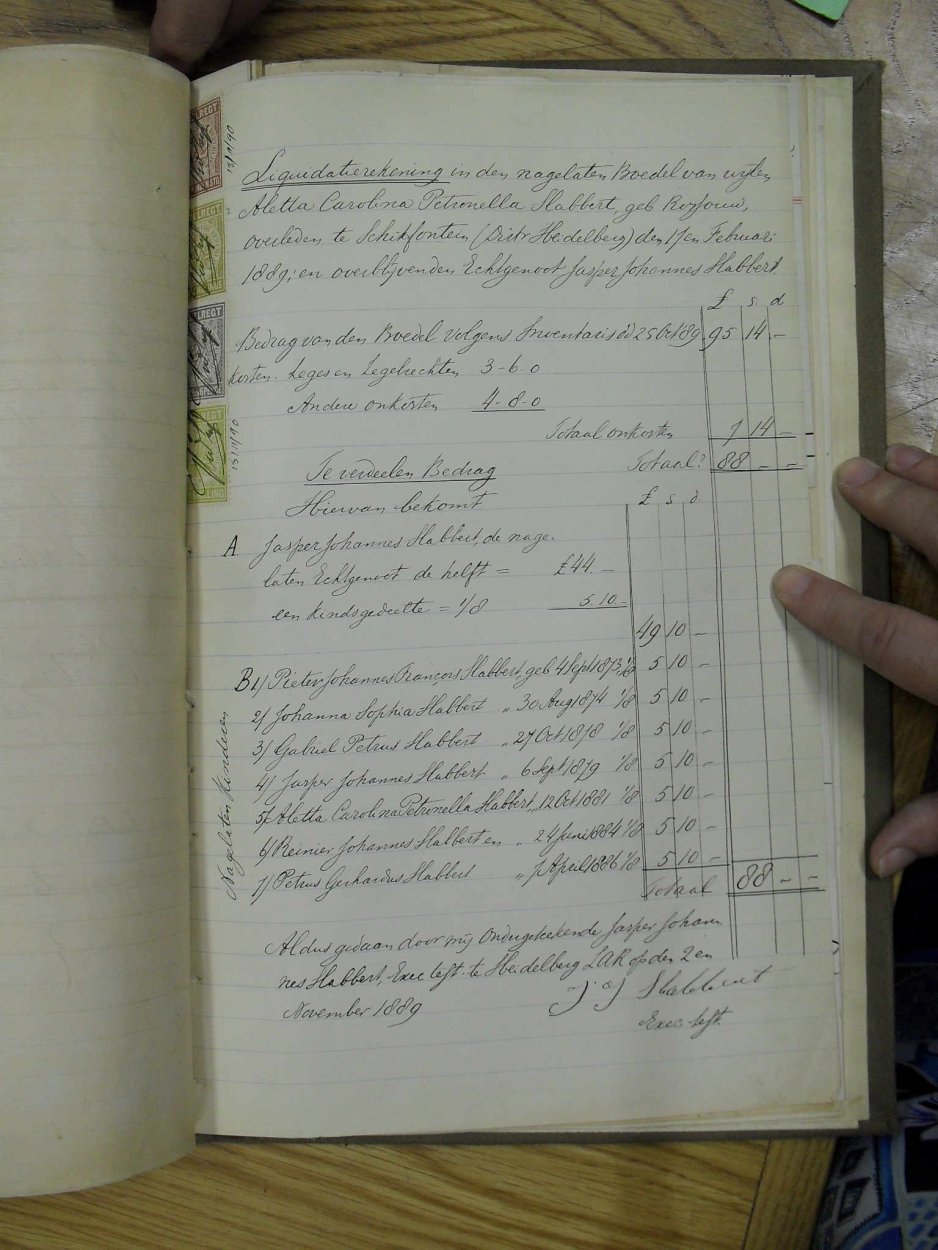 Liquidatierekening in den nagelaten Boedel van wijlen
Aletta Carolina Petronella Slabbert, geb Rossouw,
overleden te Schikfontein (Distr Heidelberg) den 17en Februari
1889; en overblijvenden Echtgenoot Jasper Johannes Slabbert
£ s. d
Bedrag van den Boedel volgens Inventaris dd 25 Oct 89. 95 14 -
Kosten. Leges en Zegelrechten 3-6-0
Andere onkosten 4-8-0
Totaal onkosten 7 14 -
Te verdeelen Bedrag Totaal 88 - -
Hiervan bekomt £ s d
A Jasper Johannes Slabbert, de nage-
laten Echtgenoot de helft = £44. -
een kindsgedeelte = 1/8 5.10 -
49 10 -
B 1/ Pieter Johannes François Slabbert, geb 4 Sept 1873 1/8 5 10 -
2/ Johanna Sophia Slabbert " 30 Aug 1874 1/8 5 10 -
3/ Gabriel Petrus Slabbert " 27 Oct 1878 1/8 5 10 -
4/ Jasper Johannes Slabbert " 6 Sept 1879 1/8 5 10 -
5/ Aletta Carolina Petronella Slabbert " 12 Oct 1881 1/8 5 10 -
6/ Reinier Johannes Slabbert en " 24 Juni 1884 1/8 5 10 -
7/ Petrus Gerhardus Slabbert " 7 April 1886 1/8 5 10 -
Nagelaten Kinderen
Totaal 88 - -
Aldus gedaan door mij Ondergeteekende Jasper Johan
nes Slabbert, Exec test. te Heidelberg ZAR op den 2en
November 1889 J J Slabbert
Exec test.
13/11/90
13/11/90
ZEGELREGT
SHILLING